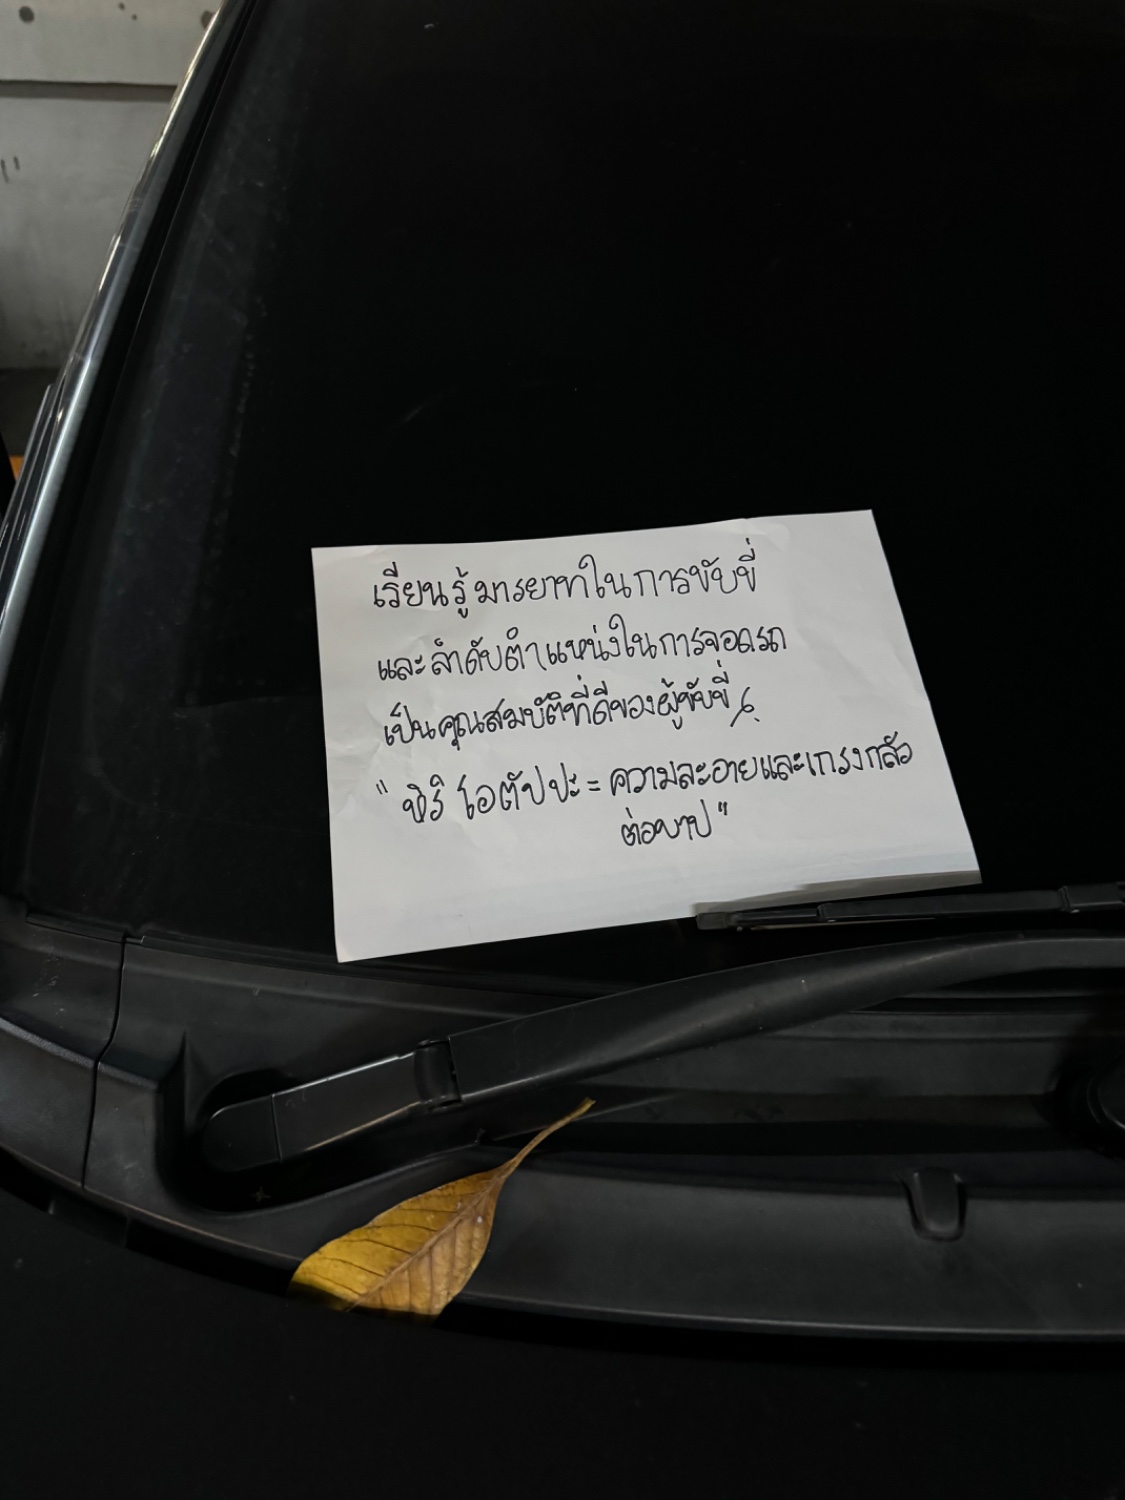 เรียนรู้มารยาทในการขับขี่
และลำดับตำแหน่งในการจอดรถ
เป็นคุณสมบัติที่ดีของผู้ขับขี่
"หิริ โอตัปปะ = ความละอายและเกรงกลัว
ต่อบาป"